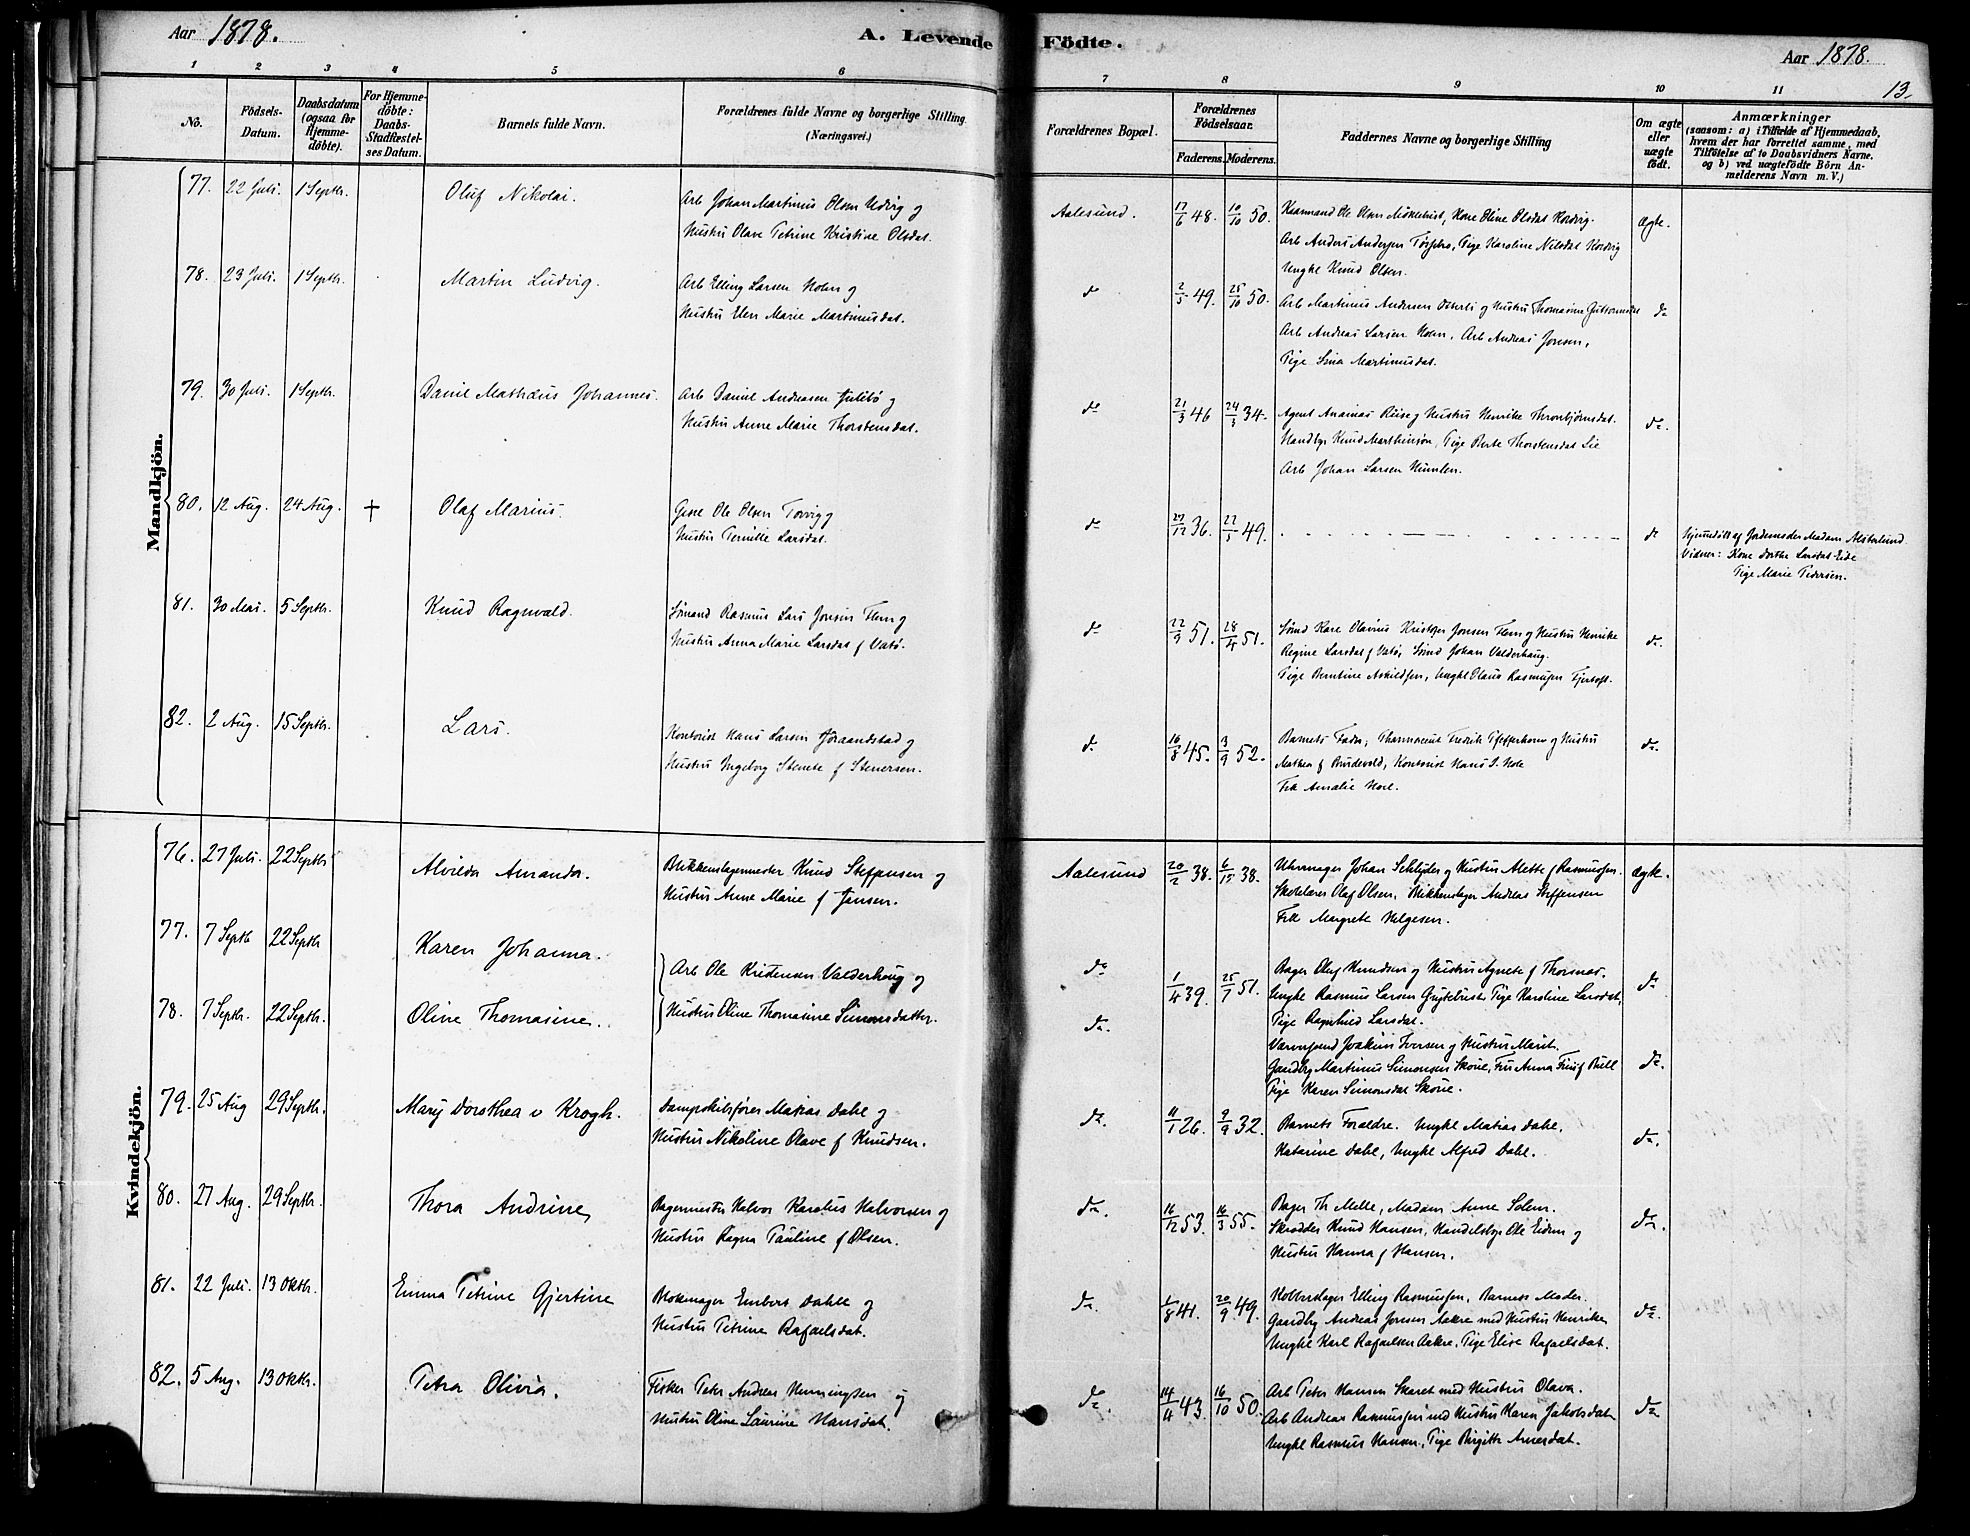 Aar 1878.
A. Levende Födte.
Aar 1878.
13.
1 2 3 4 5 6 7 8 9 10 11
No.
Födsels-Datum.
Daabsdatum (ogsaa for Hjemme-döbte).
For Hjemme-döbte: Daabs-Stadfæstel-ses Datum.
Barnets fulde Navn.
Forældrenes fulde Navne og borgerlige Stilling (Næringsvei.)
Forældrenes Bopæl.
Forældrenes Födselsaar.
Faderens. Moderens.
Faddernes Navne og borgerlige Stilling
Om ægte eller uægte födt.
Anmærkninger
(saasom: a) i Tilfælde af Hjemmedaab,
hvem der har forrettet samme, med
Tilföielse af to Daabsvidners Navne.
og b) ved uægtefödte Börn An-
melderens Navn m. V.)
Mandkjön.
77. 22 Juli. 1 Septbr. Oluf Nikolai. Arb Johan Martinius Olsen Udvig og
Hustru Olave Petrine Kristine Olsdat.
Aalesund. 17/6 48. 10/10 50. Kaarmand Ole Olsen Möklebust, Kone Oline Olsdat Hordvig. Ægte.
Arb Anders Andersen, Pige Karoline Nilsdat Hordvig
Ungkl Knud Olsen.
78. 23 Juli. 1 Septbr. Martin Ludvig. Arb Elling Larsen Holen og
Hustru Elen Marie Martinusdat.
do 2/5 49. 25/10 50. Arb Martinius Andersen og Hustru Thomasine do
Arb Andreas Larsen Holen, Arb Andreas Jonsen,
Pige Sina Martinusdat.
79. 30 Juli. 1 Septbr. Daniel Mathæus Johannes. Arb Daniel Andreasen Julebö og
Hustru Anne Marie Thorstensdat.
do 21/3 46 24/3 34. Agent Ananias Riise og Hustru Henrike Thorbjörnsdat. do.
Handlbg Knud Marthinson, Pige Berte Thorstensdat Lie
Arb Johan Larsen Humlen.
80. 12 Aug. 24 Aug. + Olaf Marius. Ole Olsen Torvig og
Hustru Pernille Larsdat.
do 27/12 36. 22/5 49. do Hjemmedöbt af Jordemoder Madam Alsterlund
Vidner: Kone Dorthe Larsdat Eide
Pige Marie Pedersen.
81. 30 Mai. 5 Septbr. Knud Ragnvald. Sömand Rasmus Lars Jonsen Flem og
Hustru Anna Marie Larsdat f Vatö.
do 22/9 51. 28/4 51. Sömd Kare Olavius Kristofer Jonsen Flem og Hustru Henrike do.
Regine Larsdat f Vatö, Sömd Johan Valderhaug.
Pige Berntine Askildsen, Ungkl Olaus Rasmusen Fjertoft.
82. 2 Aug. 15 Septbr. Lars. Kontorist Hans Larsen og
Hustru Ingeborg Stenete f Stenersen.
do. 16/8 45. 3/9 52. Barnets Fader, Pharmaceut Fredrik Pfefferkorn og Hustru do.
Mathea f Brudevold, Kontorist Hans
Frk Amalie
Kvindekjön.
76. 27 Juli. 22 Septbr Alvilda Amanda. Blikkenslagermester Knud Steffensen og
Hustru Anne Marie f Jansen.
Aalesund 20/2 38. 6/12 38. Uhrmager Johan Schlyder og Hustru Alette f Rasmusen. ægte.
Skolelærer Olaf Olsen, Blikkenslager Andreas Steffensen
Frk Margrete Helgesen.
77. 7 Septb 22 Septbr Karen Johanna. Arb Ole Kristensen Valderhaug og
78. 7 Septbr. 22 Septbr. Oline Thomasine. Hustru Oline Thomasine Simonsdatter.
do 1/4 39. 25/7 51. Bager Oluf Knudsen og Hustru Agnete f Thormas. do
Ungkl Rasmus Larsen Grytebust, Pige Karoline Larsdat,
do. Pige Ragnhild Larsdat.
Joakim Iversen og Hustru Marit.
Gaardbg Martinus Simonsen Skoue, Fru Anna Friis f Bull do.
Pige Karen Simonsdat Skoue.
79. 25 Aug 29 Septbr. Mary Dorothea v Krogh. Dampskibsförer Matias Dahl og
Hustru Nikoline Olave f Knudsen.
do. 11/1 26. 9/9 32. Barnets Forældre. Ungkl Matias Dahl, do.
Katarine Dahl, Ungkl Alfred Dahl.
80. 27 Aug. 29 Septbr. Thora Andrine Bagermester Halvor Karelius Halvorsen og
Hustru Ragna Pauline f Olsen.
do. 16/12 53. 16/3 55. Bager Th Melle, Madam Anne Solem. do.
Skrædder Knud Hansen, Handelsbg Ole Eidem og
Hustru Hanna f Hansen.
81. 22 Juli. 13 Oktbr. Emma Petrine Gjertine Blokmager Embert Dahle og
Hustru Petrine Rafaelsdat.
do. 1/8 41. 20/9 49. Kobberslager Elling Rasmusen, Barnets Moder. do.
Gaardbg Andreas Jonsen Aakre med Hustru Henrikke
Ungkl Karl Rafaelsen Aakre, Pige Elise Rafaelsdat.
82. 5 Aug. 13 Oktbr. Petra Olivia. Fisker Peter Andreas Henningsen og
Hustru Oline Laurine Hansdat.
do. 14/4 43. 16/10 50. Arb Peter Hansen Skaret med Hustru Olava. do
Arb Andreas Rasmusen med Hustru Karen Jakobsdat
Ungkl Rasmus Hansen, Pige Birgitte Arnesdat.